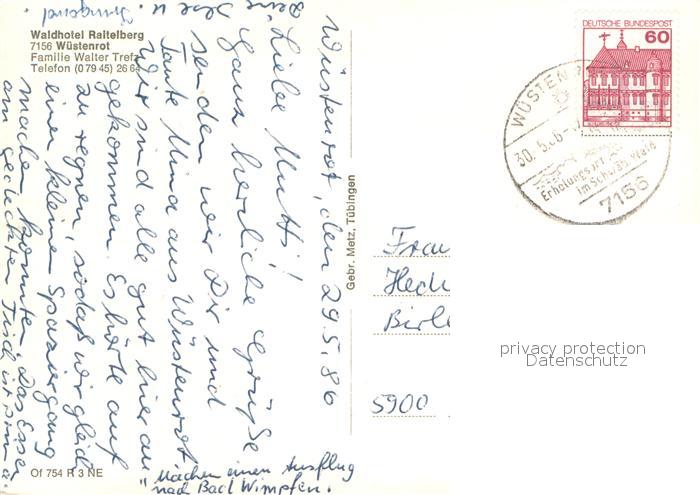 Waldhotel Raitelberg
7156 Wüstenrot
Familie Walter Trefz
Telefon (0 79 45) 26 64
Wüstenrot, den 29.5.86
Liebe Mutti!
Ganz herzliche Grüße
senden wir Dir und
Tante Mina aus Wüstenrot
Wir sind alle gut hier an
gekommen. Es hörte auf
zu regnen, sodaß wir gleich
einen kleinen Spaziergang
machen konnten. Das Essen
am gedeckten Tisch ist prima.
Machen einen Ausflug
nach Bad Wimpfen.
Deine
Irmgard
Gebr. Metz, Tübingen
Of 754 R 3 NE
DEUTSCHE BUNDESPOST
60
WÜSTEN
30.5.86
Erholungsort
im Schwäb. Wald
7156
Frau
Hech
Birle
5900
privacy protection
Datenschutz